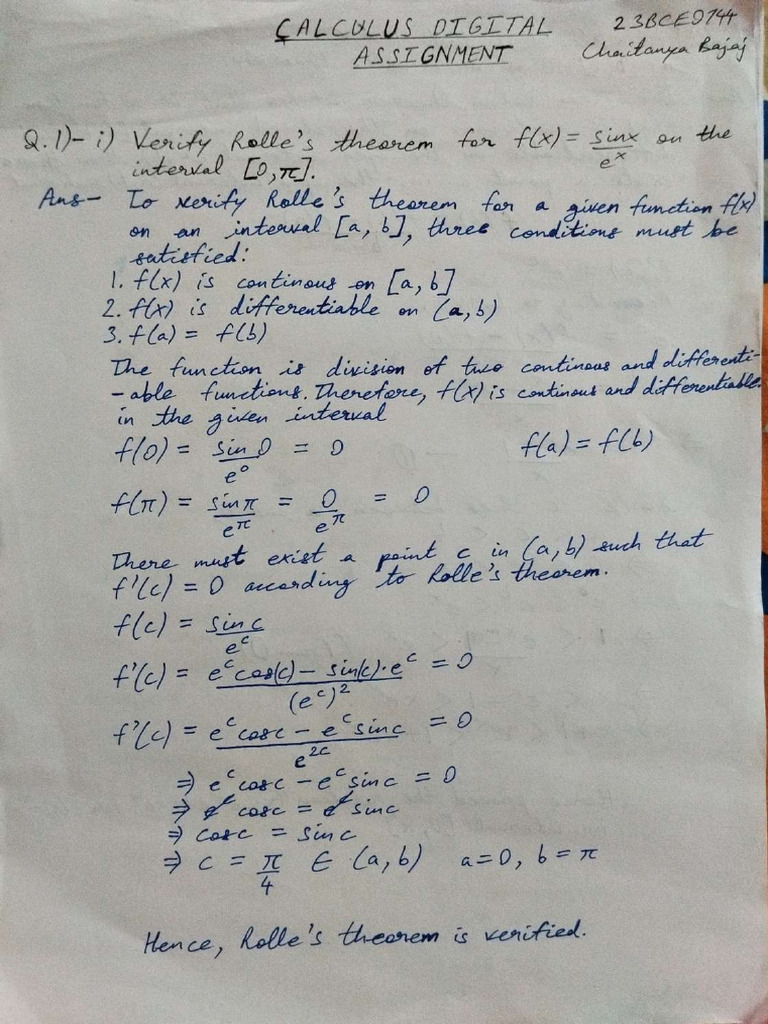 CALCULUS DIGITAL
ASSIGNMENT
23BCE0744
Chaitanya Bajaj
Q.1)- i) Verify Rolle's theorem for f(x) = sinx/e^x on the
interval [0,π].
Ans- To verify Rolle's theorem for a given function f(x)
on an interval [a, b], three conditions must be
satisfied:
1. f(x) is continous on [a, b]
2. f(x) is differentiable on (a, b)
3. f(a) = f(b)
The function is division of two continous and differenti-
-able functions. Therefore, f(x) is continous and differentiable
in the given interval
f(0) = sin 0/e^0 = 0 f(a) = f(b)
f(π) = sinπ/e^π = 0/e^π = 0
There must exist a point c in (a, b) such that
f'(c) = 0 according to Rolle's theorem.
f(c) = sinc/e^c
f'(c) = e^c cos(c) - sin(c)·e^c/(e^c)^2 = 0
f'(c) = e^c cosc - e^c sinc/e^2c = 0
⇒ e^c cosc - e^c sinc = 0
⇒ e^c cosc = e^c sinc
⇒ cosc = sinc
⇒ c = π/4 ∈ (a, b) a=0, b=π
Hence, Rolle's theorem is verified.